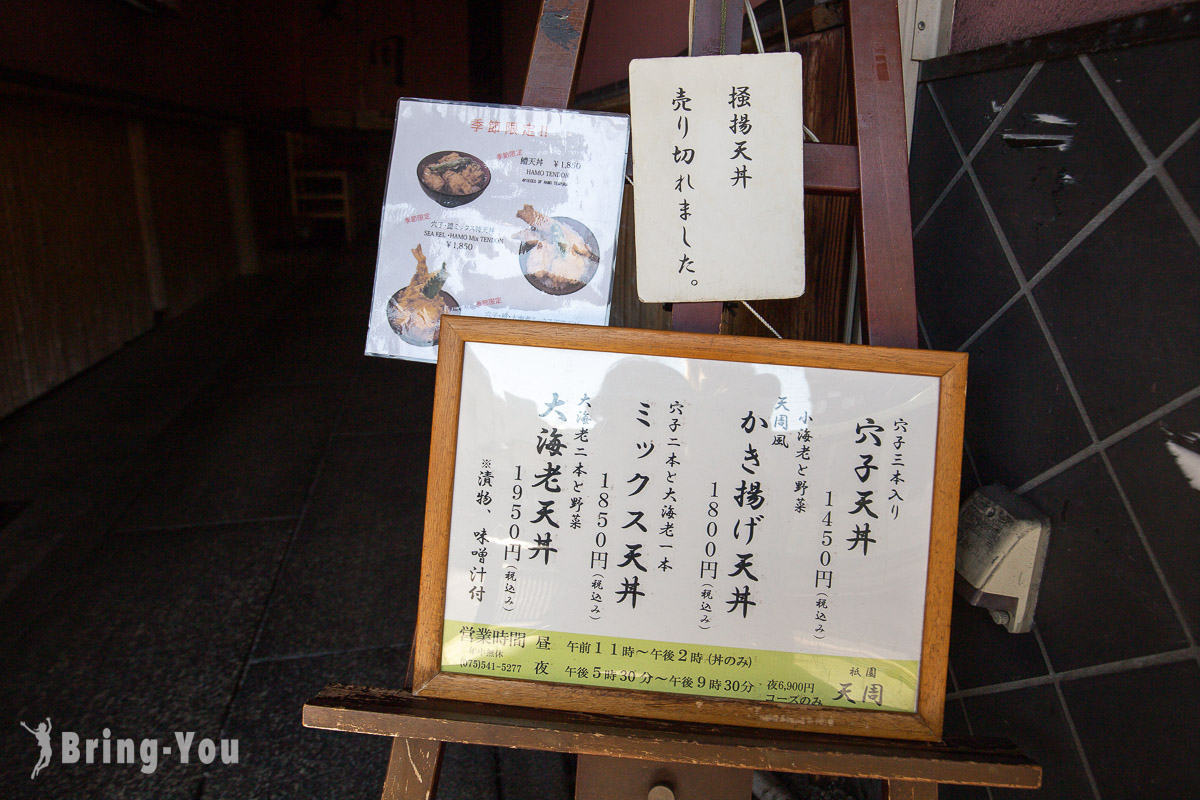 季節限定!!
季節限定
鱧天丼 ¥1,850
HAMO TENDON
季節限定
穴子・鱧ミックス天丼
SEA EEL・HAMO Mix TENDON
¥1,850
季節限定
掻揚天丼
売り切れました。
穴子三本入り
穴子天丼
1450円(税込み)
小海老と野菜
天周風
かき揚げ天丼
1800円(税込み)
穴子二本と大海老一本
ミックス天丼
1850円(税込み)
大海老二本と野菜
大海老天丼
1950円(税込み)
※漬物、味噌汁付
営業時間 昼 午前11時~午後2時(丼のみ)
年中無休
(075)541-5277 夜 午後5時30分~午後9時30分
夜6,900円
コースのみ
祇園
天周
Bring-You